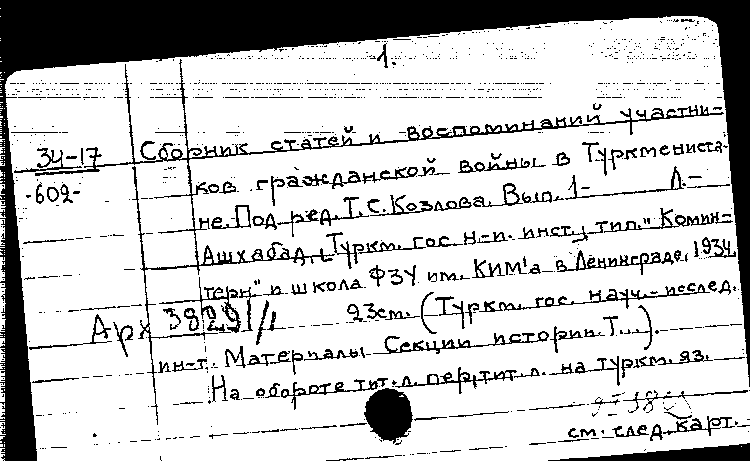 1.
34-17 Сборник статей и воспоминаний участни-
-602- ков гражданской войны в Туркмениста-
не. Под ред. Т.С. Козлова. Вып. 1- Л.-
Ашхабад, Туркм. гос. н-и. инст., тип. "Комин-
терн" и школа ФЗУ им. КИМ'а в Ленинграде, 1934.
Арх 38291/1 23см. (Туркм. гос. науч.-исслед.
ин-т. Материалы Секции истории Т...).
На обороте тит. л. пер. тит. л. на туркм. яз.
см. след. карт.